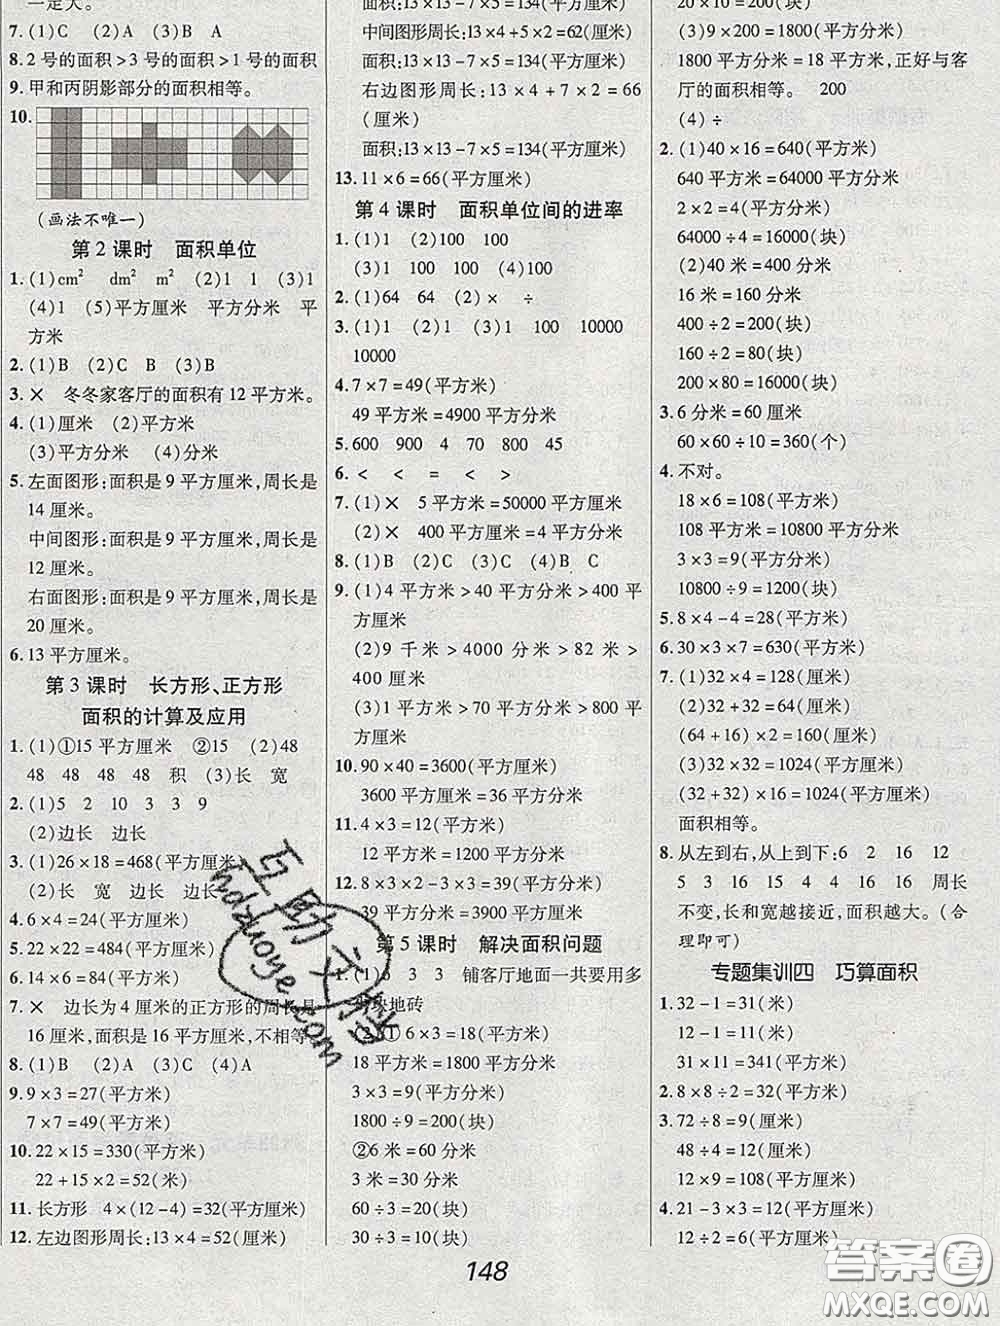 一定大。
7.(1)C　(2)A　(3)B　A
8.2号的面积>3号的面积>1号的面积
9.甲和丙阴影部分的面积相等。
10.
(画法不唯一)
第2课时　面积单位
1.(1)cm²　dm²　m²　(2)1　1　(3)1
(4)1　(5)平方厘米　平方分米　平
方米
2.(1)B　(2)C　B　(3)B
3.×　冬冬家客厅的面积有12平方米。
4.(1)厘米　(2)平方米
(3)平方分米　(4)分米
5.左面图形:面积是9平方厘米,周长是
14厘米。
中间图形:面积是9平方厘米,周长是
12厘米。
右面图形:面积是9平方厘米,周长是
20厘米。
6.13平方厘米。
第3课时　长方形、正方形
面积的计算及应用
1.(1)①15平方厘米　②15　(2)48
48　48　48　48　积　(3)长　宽
2.(1)5　2　10　3　3　9
(2)边长　边长
3.(1)26×18=468(平方厘米)
(2)长　宽　边长　边长
4.6×4=24(平方厘米)
5.22×22=484(平方厘米)
6.14×6=84(平方厘米)
7.×　边长为4厘米的正方形的周长是
16厘米,面积是16平方厘米,不相等
8.(1)B　(2)A　(3)C　(4)A
9.9×3=27(平方米)
7×7=49(平方厘米)
10.22×15=330(平方米)
22+15×2=52(米)
11.长方形　4×(12-4)=32(平方厘米)
12.左边图形周长:13×4=52(厘米)
面积:13×13-7×5=134(平方厘米)
中间图形周长:13×4+5×2=62(厘米)
面积:13×13-7×5=134(平方厘米)
右边图形周长:13×4+7×2=66
(厘米)
面积:13×13-7×5=134(平方厘米)
13.11×6=66(平方厘米)
第4课时　面积单位间的进率
1.(1)1　(2)100　100
(3)1　100　100　(4)100
2.(1)64　64　(2)×　÷
3.(1)1　(2)1　(3)1　100　10000
10000
4.7×7=49(平方米)
49平方米=4900平方分米
5.600　900　4　70　800　45
6.<　<　=　<　>
7.(1)×　5平方米=50000平方厘米
(2)×　400平方厘米=4平方分米
8.(1)B　(2)C　(3)C　(4)B　C
9.(1)4平方米>40平方分米>400平
方厘米
(2)9千米>4000分米>82米>
400厘米
(3)1平方米>70平方分米>800平
方厘米
10.90×40=3600(平方厘米)
3600平方厘米=36平方分米
11.4×3=12(平方米)
12平方米=1200平方分米
12.8×3×2-3×3=39(平方分米)
39平方分米=3900平方厘米
第5课时　解决面积问题
1.(1)6　3　3　铺客厅地面一共要用多
少块地砖
(2)①6×3=18(平方米)
18平方米=1800平方分米
3×3=9(平方分米)
1800÷9=200(块)
②6米=60分米
3米=30分米
60÷3=20(块)
30÷3=10(块)
20×10=200(块)
(3)9×200=1800(平方分米)
1800平方分米=18平方米,正好与客
厅的面积相等。　200
(4)÷
2.(1)40×16=640(平方米)
640平方米=64000平方分米
2×2=4(平方分米)
64000÷4=16000(块)
(2)40米=400分米
16米=160分米
400÷2=200(块)
160÷2=80(块)
200×80=16000(块)
3.6分米=60厘米
60×60÷10=360(个)
4.不对。
18×6=108(平方米)
108平方米=10800平方分米
3×3=9(平方分米)
10800÷9=1200(块)
5.8×4-4=28(平方米)
6.30×3×7=630(平方米)
7.(1)32×4=128(厘米)
(2)32+32=64(厘米)
(64+16)×2=160(厘米)
(3)32×32=1024(平方厘米)
(32+32)×16=1024(平方厘米)
面积相等。
8.从左到右,从上到下:6　2　16　12
5　3　16　15　4　4　16　16　周长
不变,长和宽越接近,面积越大。(合
理即可)
专题集训四　巧算面积
1.32-1=31(米)
12-1=11(米)
31×11=341(平方米)
2.8×8÷2=32(平方米)
3.72÷8=9(厘米)
48÷4=12(厘米)
12×9=108(平方厘米)
4.21-3×3=12(平方厘米)
12÷2=6(平方厘米)
148
互助文档
hdzuoye.com
答案圈
MXQE.COM